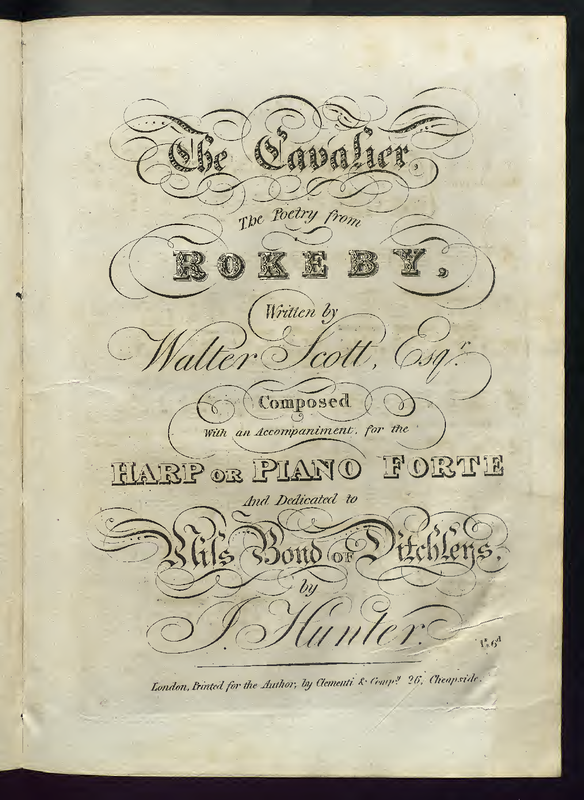 The Cavalier,
The Poetry from
ROKEBY,
Written by
Walter Scott, Esqr.
Composed
With an Accompaniment, for the
HARP OR PIANO FORTE
And Dedicated to
Miſs Bond OF Ditchleys,
by
J. Hunter.
London, Printed for the Author, by Clementi & Compy. 26, Cheapside.